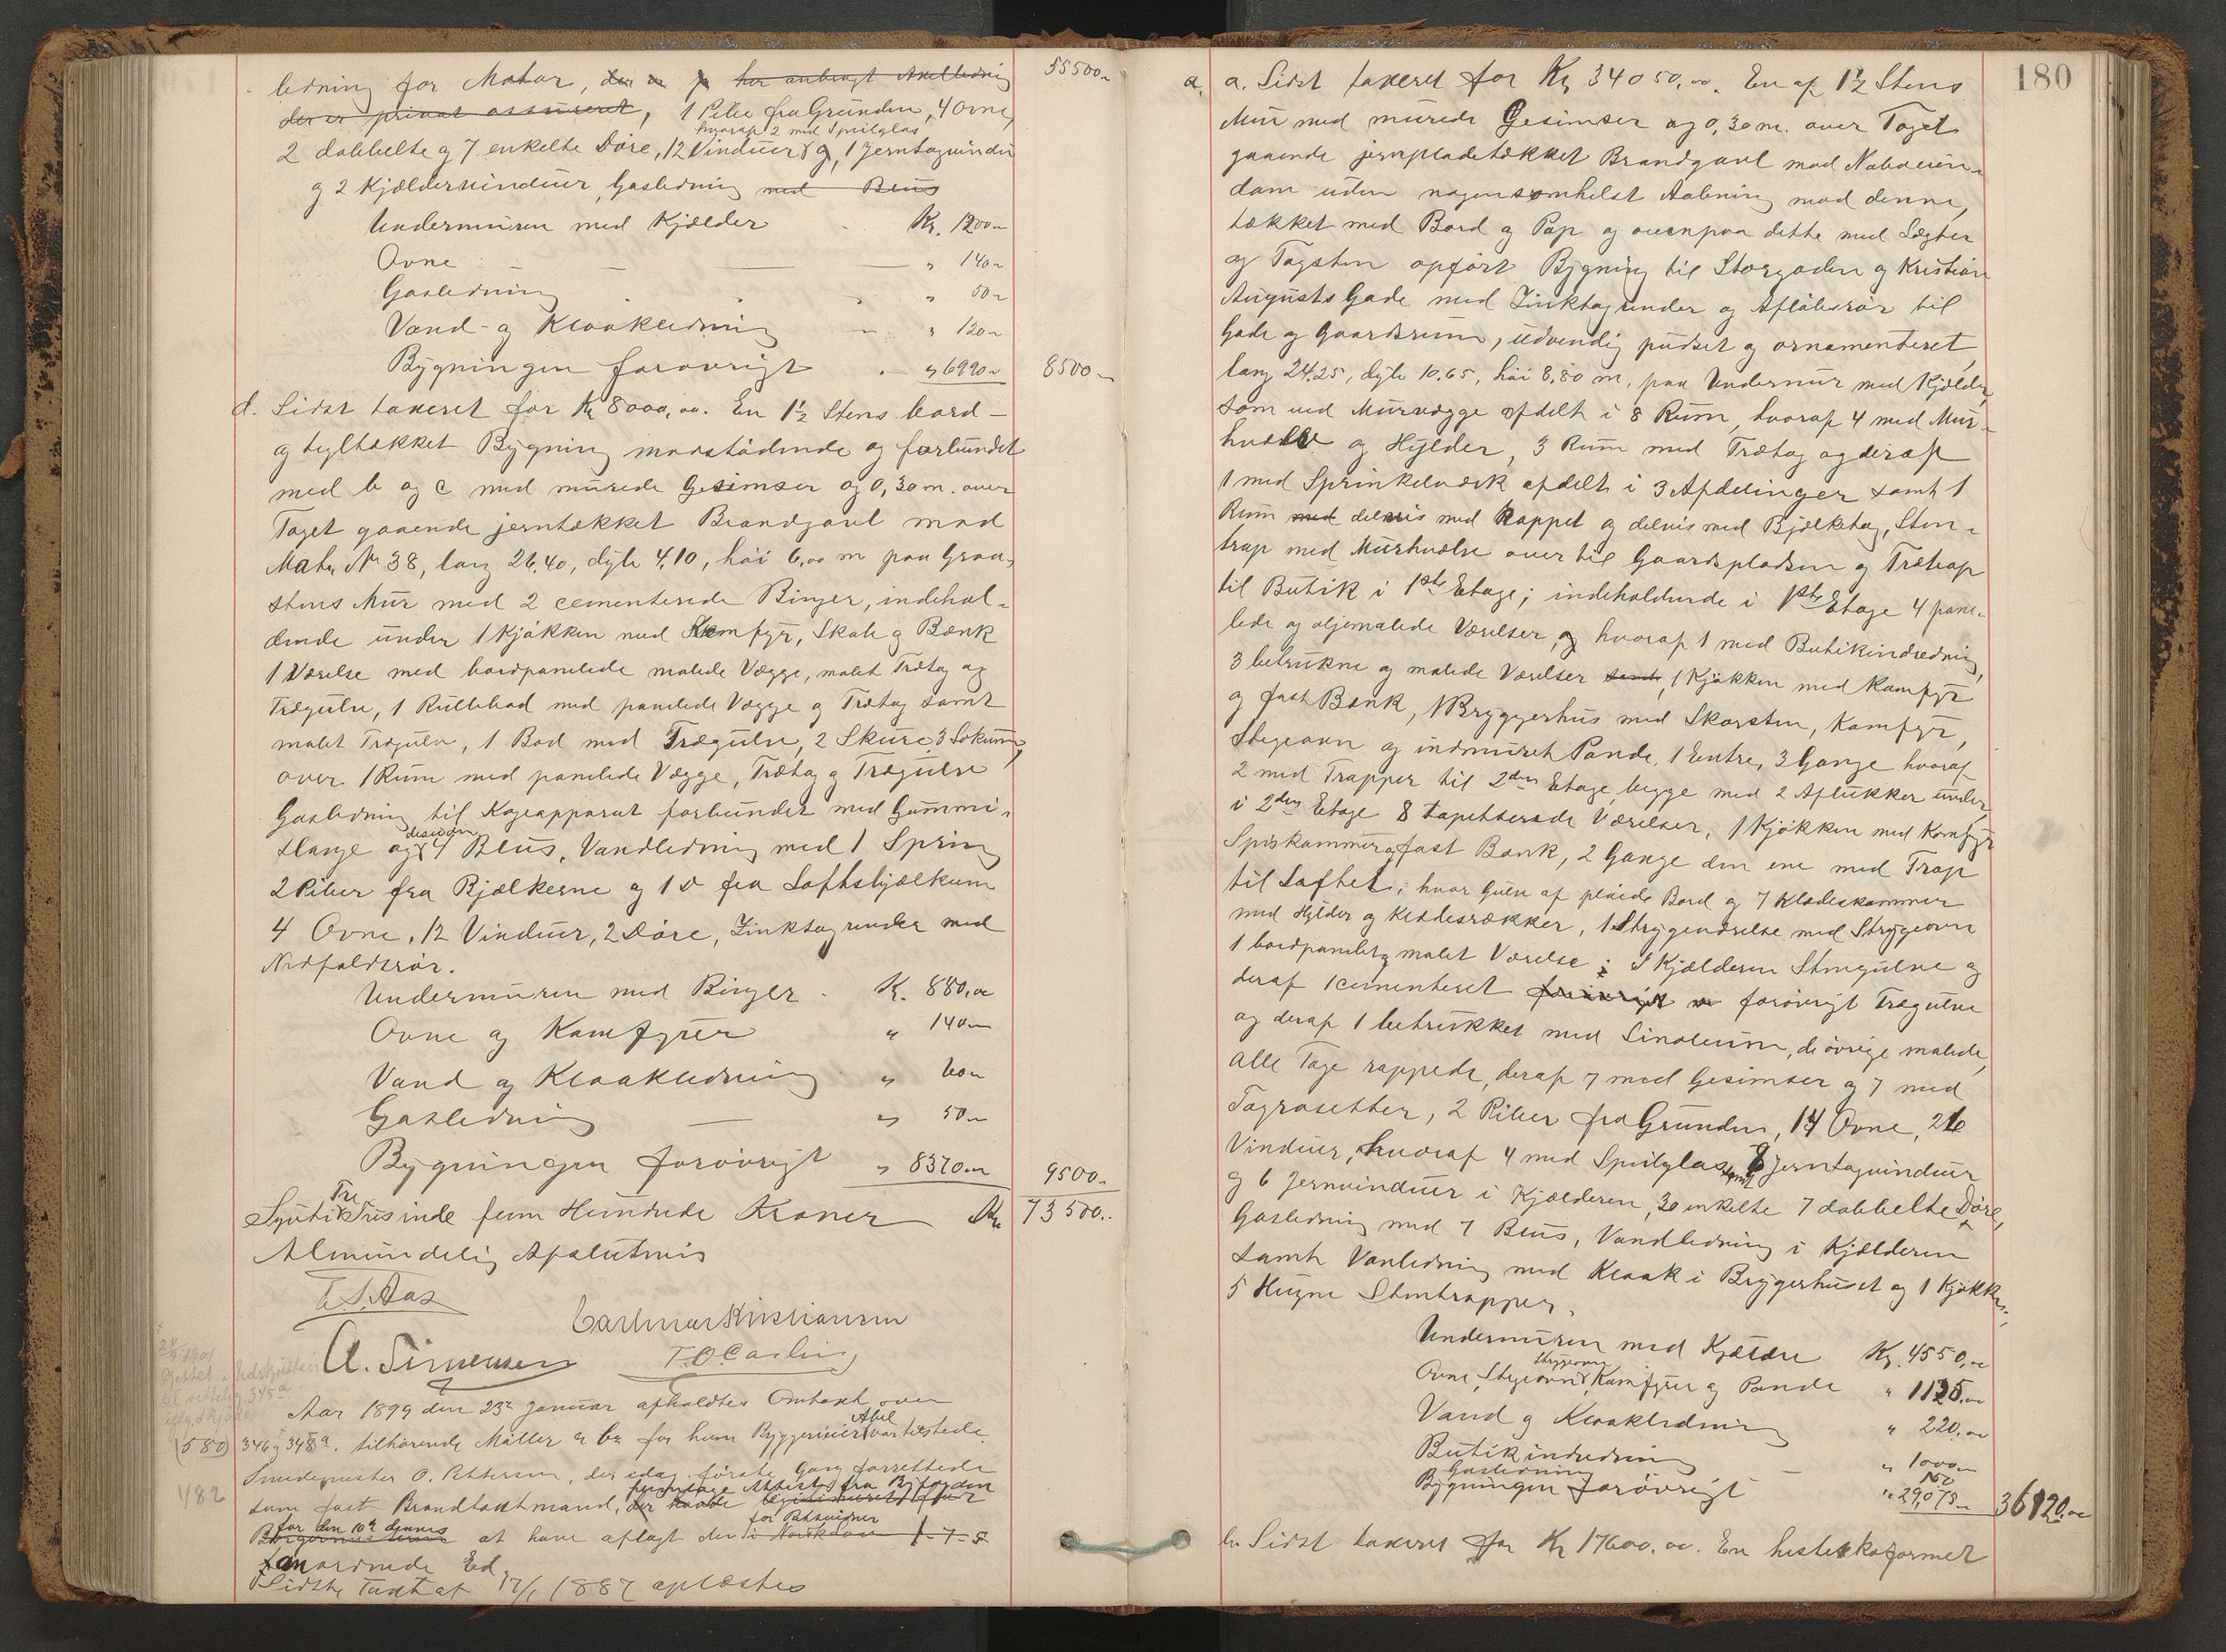 ledning for Motor, der er har anbragt Axelledning 55500.-
der er privat assureret, 1 Pibe fra Grunden, 4 Ovne,
hvoraf 2 med Speilglas
2 dobbelte og 7 enkelte Döre, 12 Vinduer og, 1 Jerntagvindu
og 2 Kjældervinduer, Gasledning med Blus
Undermuren med Kjælder Kr. 1200.-
Ovne " 140.-
Gasledning " 50.-
Vand- og Kloakledning " 120.-
Bygningen forövrigt " 6990.- 8500.-
d. Sidst taxeret for Kr 8000,00. En 1½ Stens bord-
og tegltækket Bygning modstödende og forbundet
med b og c med murede Gesimser og 0,30 m. over
Taget gaaende jerntækket Brandgavl mod
Matr. No 38, lang 26.40, dyb 4.10, höi 6,00 m paa Graa-
stens Mur med 2 cementerede Binger, indehol-
dende under 1 Kjökken med Komfyr, Skab og Bænk
1 Værelse med bordpanelede malede Vægge, malet Trætag og
Trægulv, 1 Rullebod med panelede Vægge og Trætag samt
malet Trægulv, 1 Bod med Trægulv, 2 Skure, 3 Lokummer,
over 1 Rum med panelede Vægge, Trætag og Trægulve
Gasledning til Kogeapparat forbundet med Gummi-
desuden
slange og 4 Blus, Vandledning med 1 Spring
2 Piber fra Bjælkerne og 1 do fra Loftsbjælkerne
4 Ovne, 12 Vinduer, 2 Döre, Zinktagrender med
Nedfaldsrör.
Undermuren med Binger Kr. 880,00
Ovne og Komfyrer " 140.-
Vand og Kloakledning " 60.-
Gasledning " 50.-
Bygningen forövrigt " 8370.- 9500.-
Tre
Sytti Tusinde fem Hundrede Kroner Kr. 73500..
Almindelig Afslutning
C. S. Aas
Carl Kristiansen
A. Simensen T. O. Carlin
Aar 1899 den 23de Januar afholdtes Omtaxt over
(580) 346 og 348a. tilhörende Möller for ham Bryggerieier Abel var tilstede
Smedemester O. Pettersen, der idag förste Gang forrettede
482 som fast Brandtaxtmand, fremlagde Attest fra Byfogden
for den 10de dennes at have aflagt den for Retsvidner
anordnede Ed.
Sidste Taxt af 17/1 1887 oplæstes
180
a. a. Sidst taxeret for Kr 34050,00. En af 1½ Stens
Mur med murede Gesimser og 0,30 m. over Taget
gaaende jernpladetækket Brandgavl mod Naboeien-
dom uden nogensomhelst Aabning mod denne,
tækket med Bord og Pap og ovenpaa dette med Lægter
og Tagsten opfört Bygning til Storgaden og Kristian
Augusts Gade med Zinktagrender og Aflöbsrör til
Gade og Gaardsrum, udvendig pudset og ornamenteret,
lang 24.25, dyb 10.65, höi 8.80 m, paa Undermur med Kjælder,
som ved Murvægge afdelt i 8 Rum, hvoraf 4 med Mur-
hvælv og Hylder, 3 Rum med Trætag og deraf
1 med Sprinkelværk afdelt i 3 Afdelinger samt 1
Rum med delvis med Rappet og delvis med Bjælketag, Sten-
trap med Murhvælv over til Gaardspladsen og Trætrap
til Butik i 1ste Etage; indeholdende i 1ste Etage 4 pane-
lede og oljemalede Værelser, og hvoraf 1 med Butikindredning,
3 betrukne og malede Værelser samt, 1 Kjökken med Komfyr
og fast Bænk, 1 Bryggerhus med Skorsten, Komfyr,
Stegeovn og indmuret Pande, 1 Entre, 3 Gange hvoraf
2 med Trapper til 2den Etage, begge med 2 Aflukker under,
i 2den Etage 8 tapetserede Værelser, 1 Kjökken med Komfyr
Spiskammer og fast Bænk, 2 Gange den ene med Trap
til Loftet; hvor Gulv af plöiede Bord og 7 Klædeskammer
med Hylder og Klædesrækker, 1 Strygeværelse med Strygeovn
1 bordpanelet og malet Værelse; I Kjælderen Stengulve og
deraf 1 cementeret forövrigt forövrigt Trægulve
og deraf 1 betrukket med Linoleum, de övrige malede,
Alle Tage rappede, deraf 7 med Gesimser og 7 med
Tagrosetter, 2 Piber fra Grunden, 14 Ovne, 26
Vinduer, hvoraf 4 med Speilglas samt 8 Jerntagvinduer
og 6 Jernvinduer i Kjælderen, 30 enkelte 7 dobbelte Döre,
Gasledning med 7 Blus, Vandledning i Kjælderen
samt Vanledning med Kloak i Bryggerhuset og 1 Kjökken,
5 Hugne Stentrapper.
Undermuren med Kjælder Kr. 4550,00
Strygeovn
Ovne, Stegeovn, Komfyrer og Pande " 1125.00
Vand og Kloakledning " 220.00
Butikindredning " 1000.-
Gasledning 150
Bygningen forövrigt " 29,075.- 36120.00
b. Sidst taxeret for Kr 17600.00. En hesteskoformet